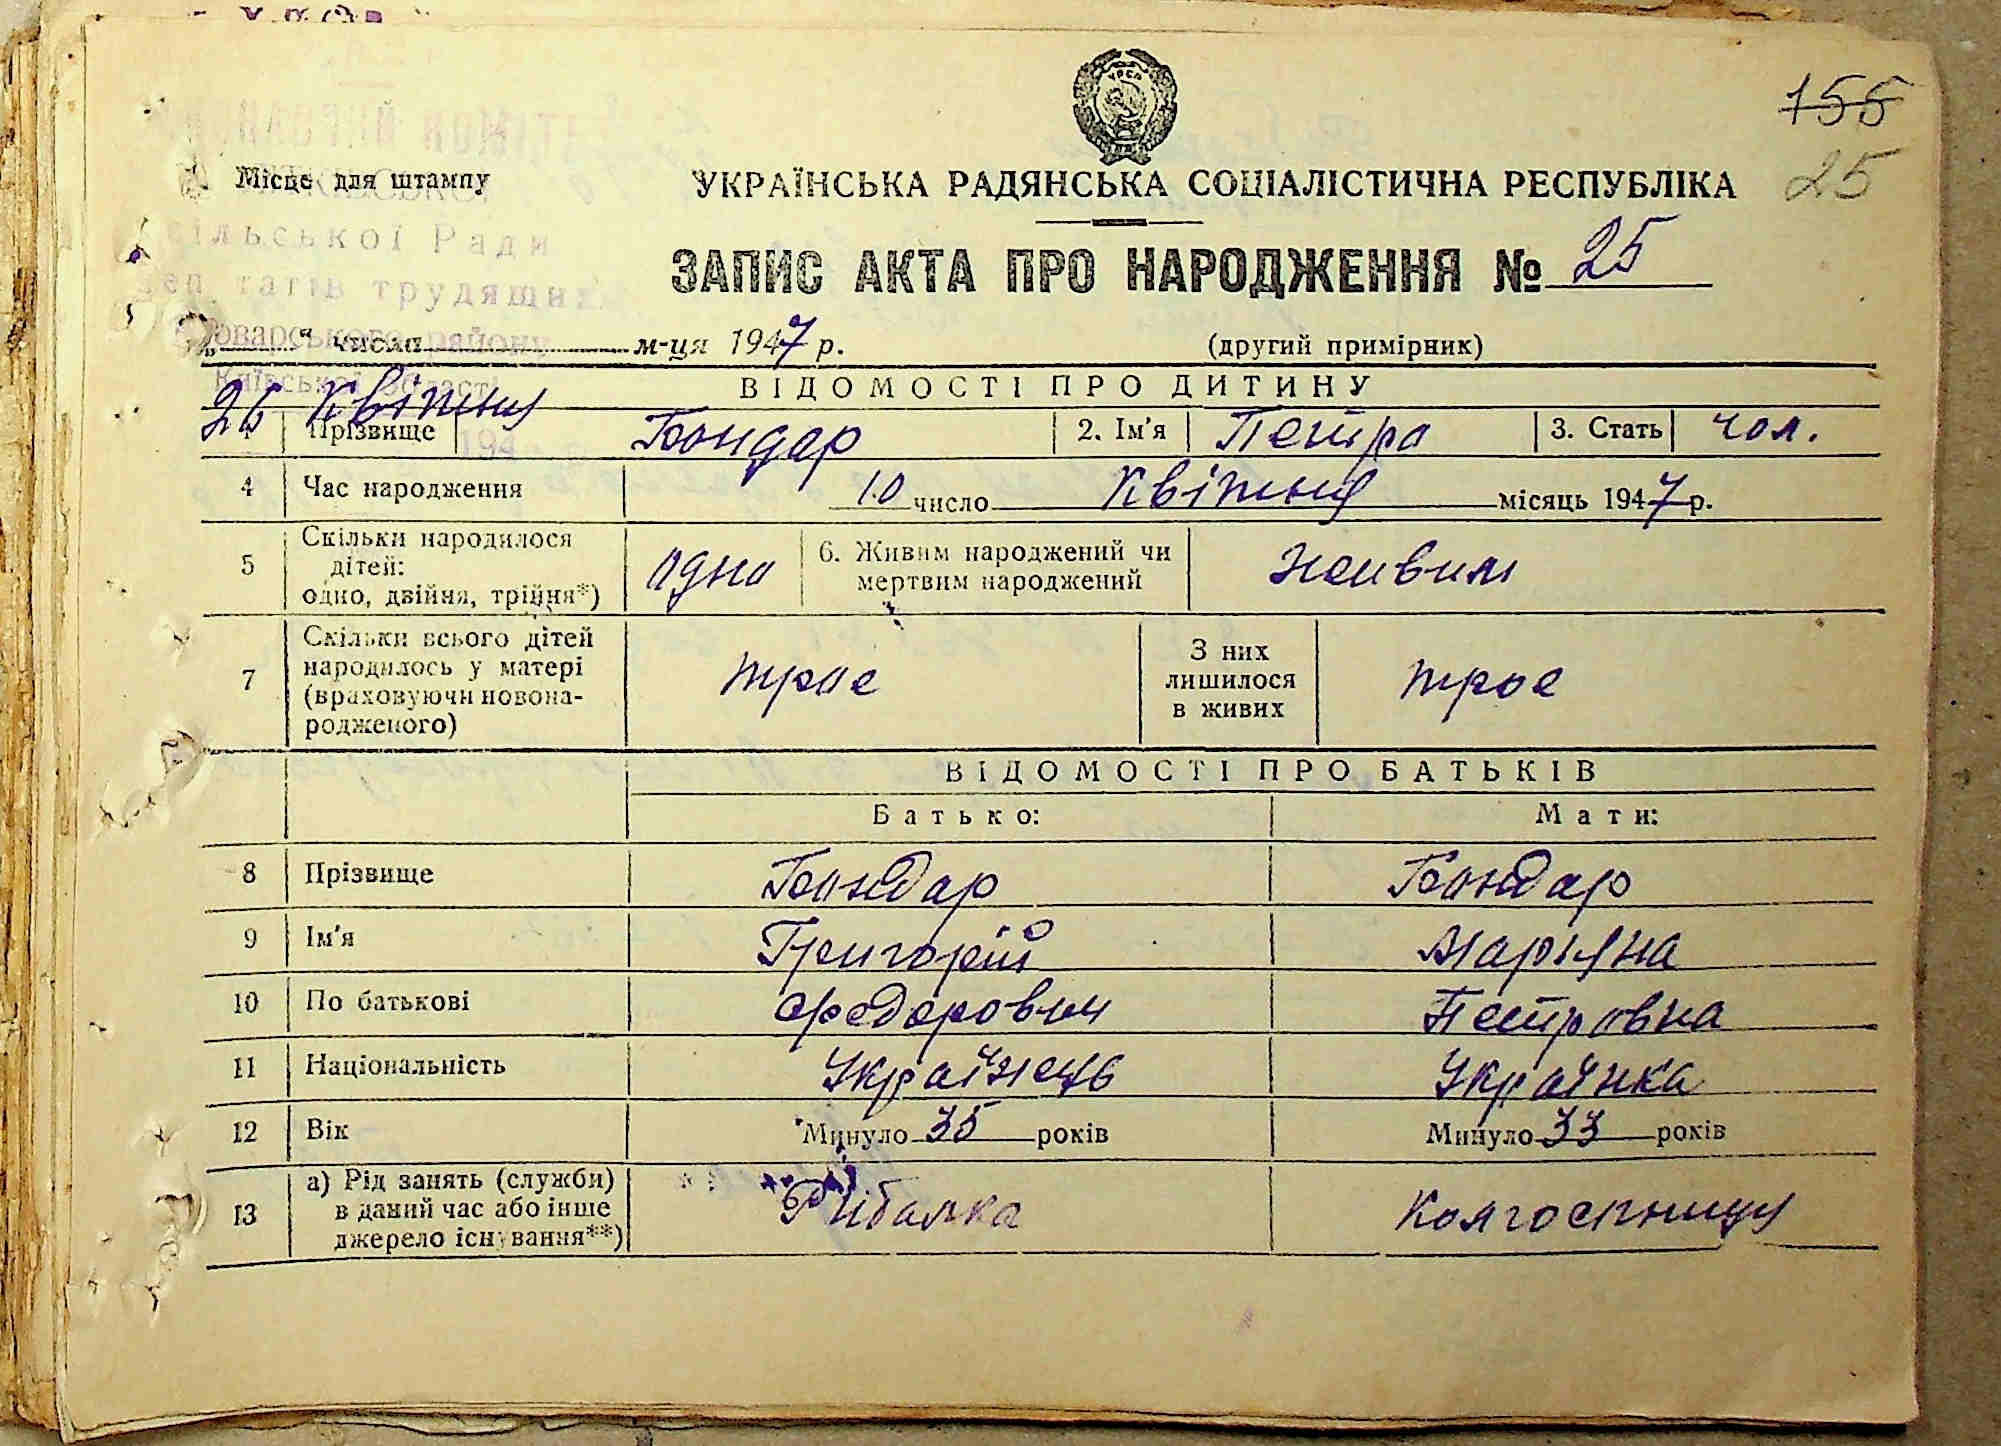 155
25
УРСР
Місце для штампу
УКРАЇНСЬКА РАДЯНСЬКА СОЦІАЛІСТИЧНА РЕСПУБЛІКА
сільської Ради
трудящих
ЗАПИС АКТА ПРО НАРОДЖЕННЯ № 25
району
" числа м-ця 1947 р. (другий примірник)
Київської області
26 квітня
ВІДОМОСТІ ПРО ДИТИНУ
194
1 Прізвище Бондар 2. Ім'я Петро 3. Стать чол.
4 Час народження 10 число квітня місяць 1947 р.
5 Скільки народилося дітей: одно, двійня, трійня*) одно 6. Живим народжений чи мертвим народжений Живим
7 Скільки всього дітей народилось у матері (враховуючи новонародженого) троє З них лишилося в живих троє
ВІДОМОСТІ ПРО БАТЬКІВ
Батько: Мати:
8 Прізвище Бондар Бондар
9 Ім'я Григорій Марьяна
10 По батькові Федорович Петровна
11 Національність Українець Українка
12 Вік Минуло 35 років Минуло 33 років
13 а) Рід занять (служби) в даний час або інше джерело існування**) Рибалка Колгоспниця